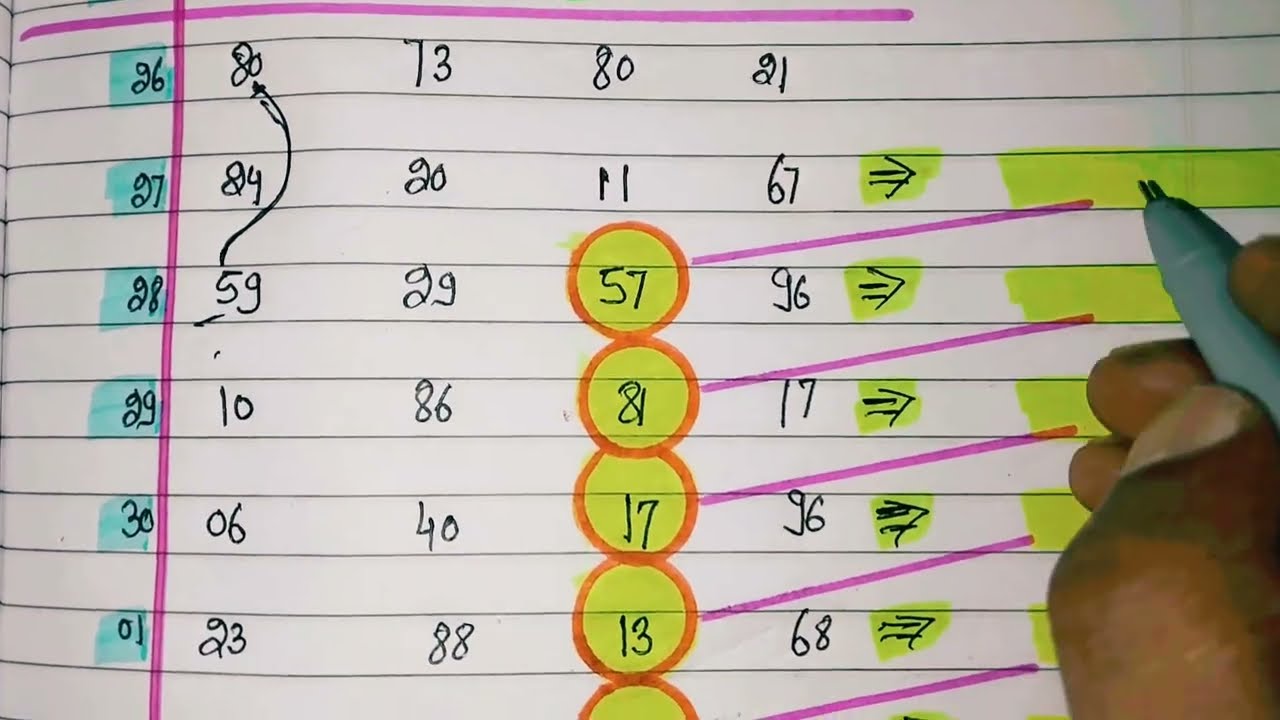 26 80 73 80 21
27 24 20 11 67 ⇒
28 59 29 57 96 ⇒
29 10 86 81 17 ⇒
30 06 40 17 96 ⇒
01 23 88 13 68 ⇒